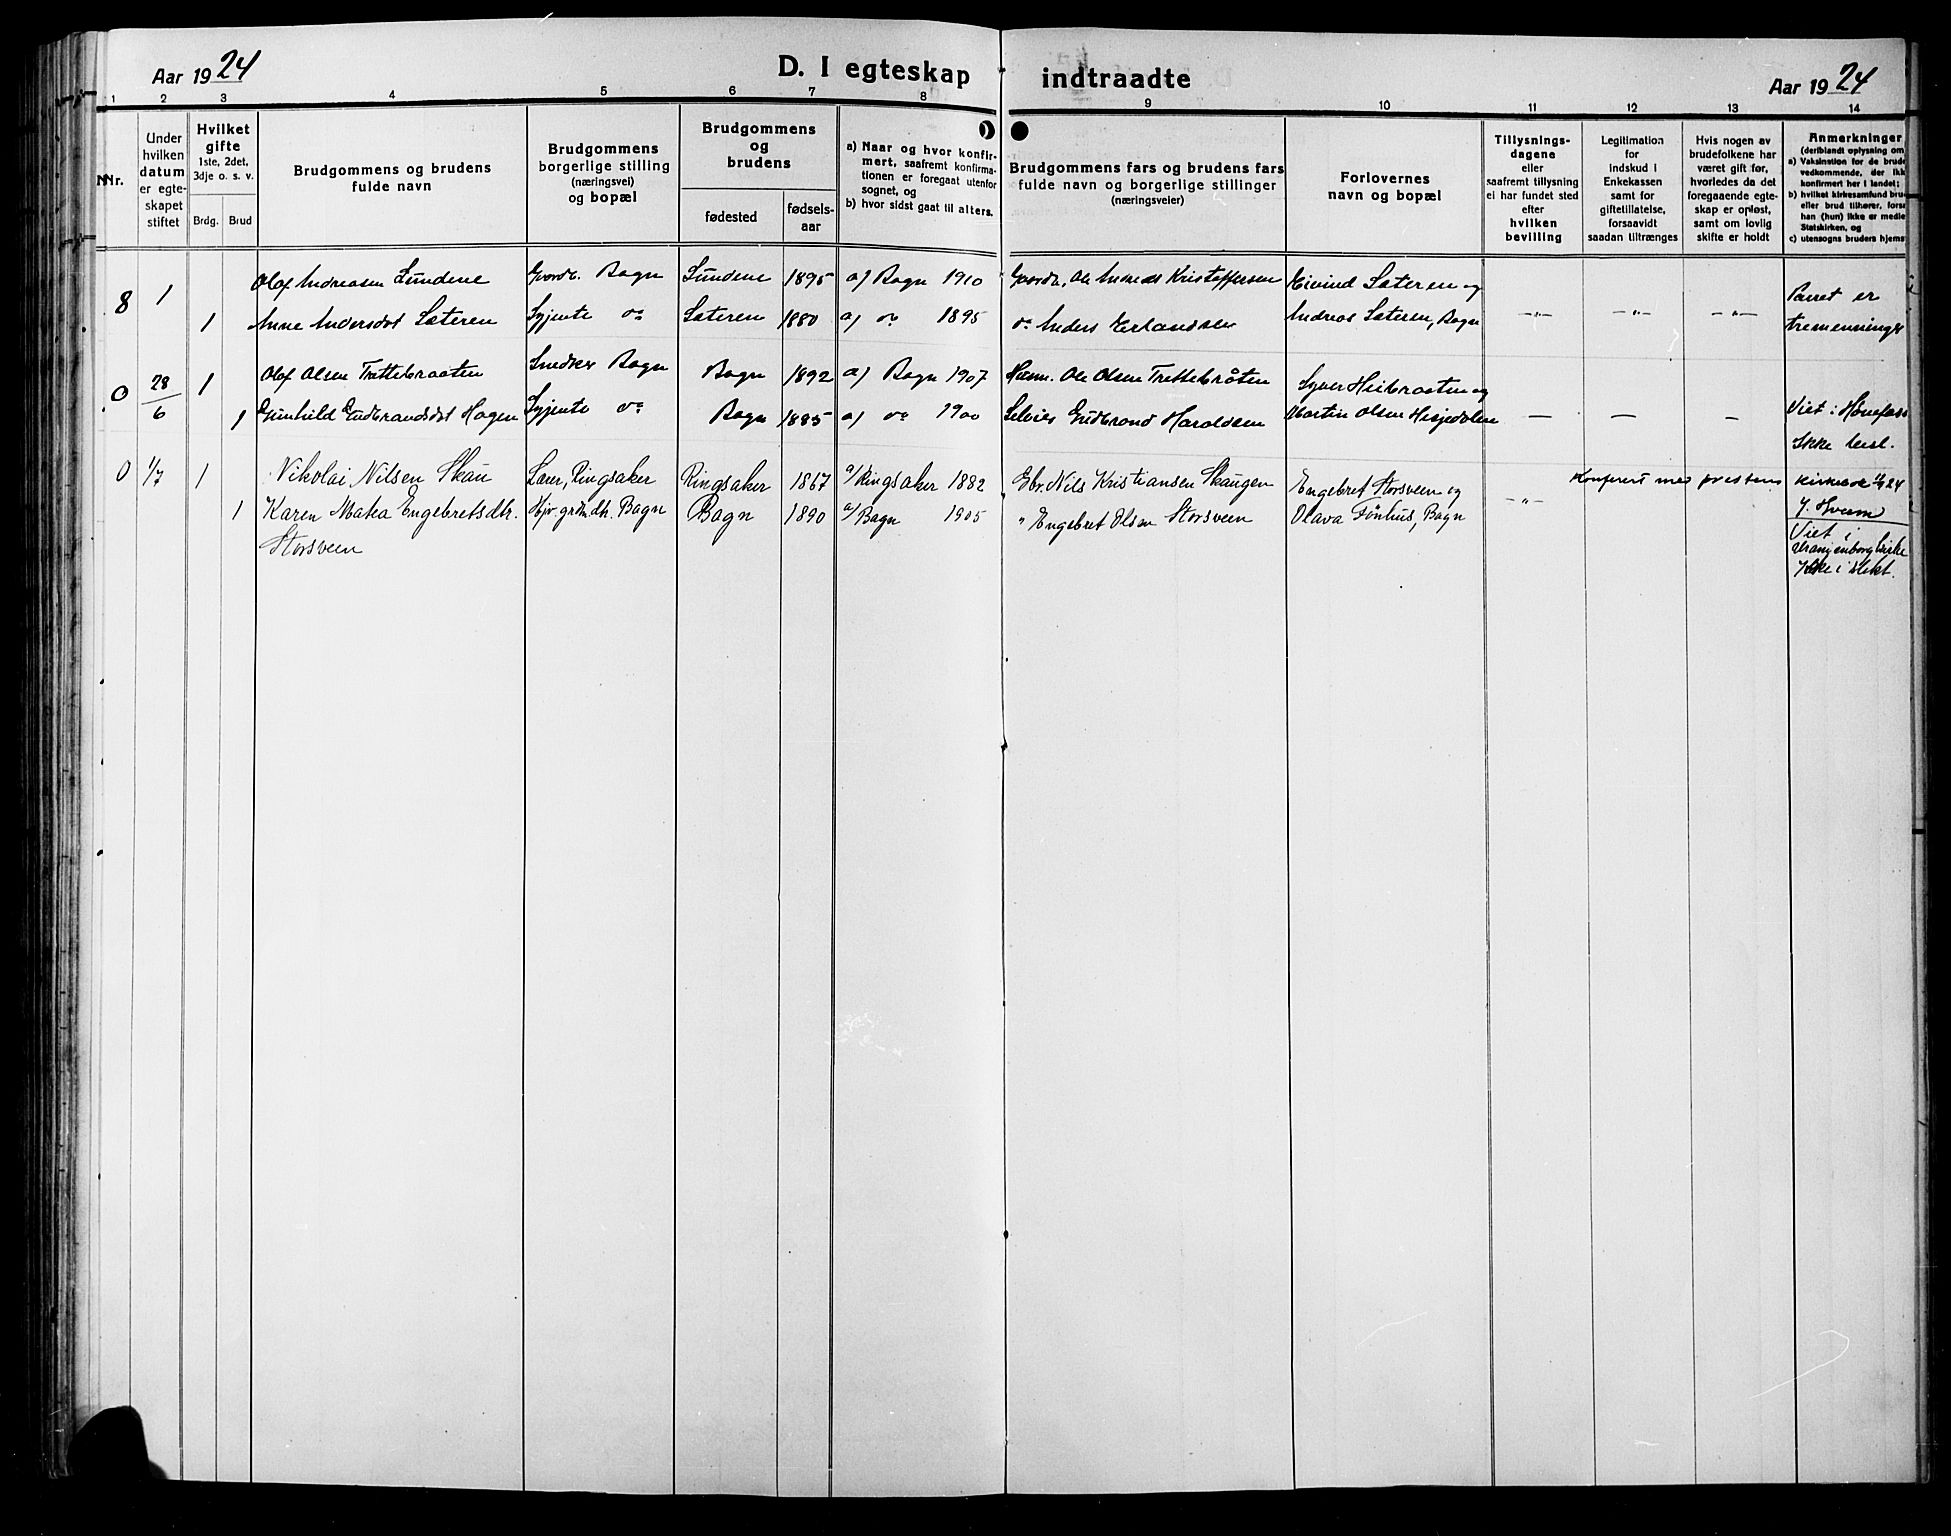 Aar 1924
D. I egteskap indtraadte
Aar 1924
1 2 3 4 5 6 7 8 9 10 11 12 13 14
Nr.
Under
hvilken
datum
er egte-
skapet
stiftet
Hvilket
gifte
1ste, 2det,
3dje o. s. v.
Brdg. Brud
Brudgommens og brudens
fulde navn
Brudgommens
borgerlige stilling
(næringsvei)
og bopæl
Brudgommens
og
brudens
fødested
fødsels-
aar
a) Naar og hvor konfir-
mert, saafremt konfirma-
tionen er foregaat utenfor
sognet, og
b) hvor sidst gaat til alters.
Brudgommens fars og brudens fars
fulde navn og borgerlige stillinger
(næringsveier)
Forlovernes
navn og bopæl
Tillysnings-
dagene
eller
saafremt tillysning
ei har fundet sted
efter
hvilken
bevilling
Legitimation
for
indskud i
Enkekassen
samt for
giftetillatelse,
forsaavidt
saadan tiltrænges
Hvis nogen av
brudefolkene har
været gift før,
hvorledes da det
foregaaende egte-
skap er opløst,
samt om lovlig
skifte er holdt
Anmerkninger
(deriblandt oplysning om
a) Vaksination for de brude
vedkommende, der ikk
konfirmert her i landet;
b) hvilket kirkesamfund bru
eller brud tilhører, forsa
han (hun) ikke er medle
Statskirken, og
c) utensogns bruders hjems
8 1 Olaf Andreasen Lundene Gvordb. Bagn Lundene 1895 a) Bagn 1910 Gvordb. Ole Andreas Kristoffersen Eivind Sæteren og
1 Anne Andersdat Sæteren Syjente do Sæteren 1880 a) do 1895 do Anders Erlandsen Andreas Sæteren, Bagn -"- -"- -"- Parret er
tremenninger
0 28/6 1 Olaf Olsen Trettebraaten Snedker Bagn Bagn 1892 a) Bagn 1907 Husm. Ole Olsen Trettebråten Syver Heibraaten og
1 Gunhild Gudbrandsdat Hagen Syjente do Bagn 1885 a) do 1900 Selveier Gudbrand Haraldsen Martin Olsen Hesjedalen — — — Viet i Hønefoss
Ikke besl.
0 1/7 1 Nikolai Nilsen Skau Lærer, Ringsaker Ringsaker 1867 a/ Ringsaker 1882 Gbr. Nils Kristiansen Skaugen Engebret Storsveen og -"- Konferert med prestens kirkebok 24
1 Karen Matea Engebretsdtr. Hjv. grdm.dtr. Bagn Bagn 1890 a/ Bagn 1905 " Engebret Olsen Storsveen Olava Fønhus, Bagn J. Hvem
Storsveen Viet i
Uranienborg kirke
Ikke i slekt.